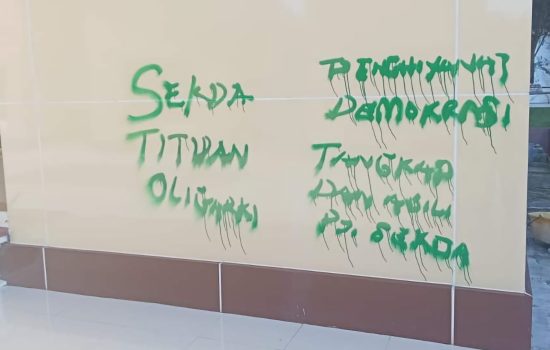 SEKDA
TITIPAN
OLIGARKI
PENGHIYANAT
DEMOKRASI
TANGKAP
DAN ADILI
PJ. SEKDA